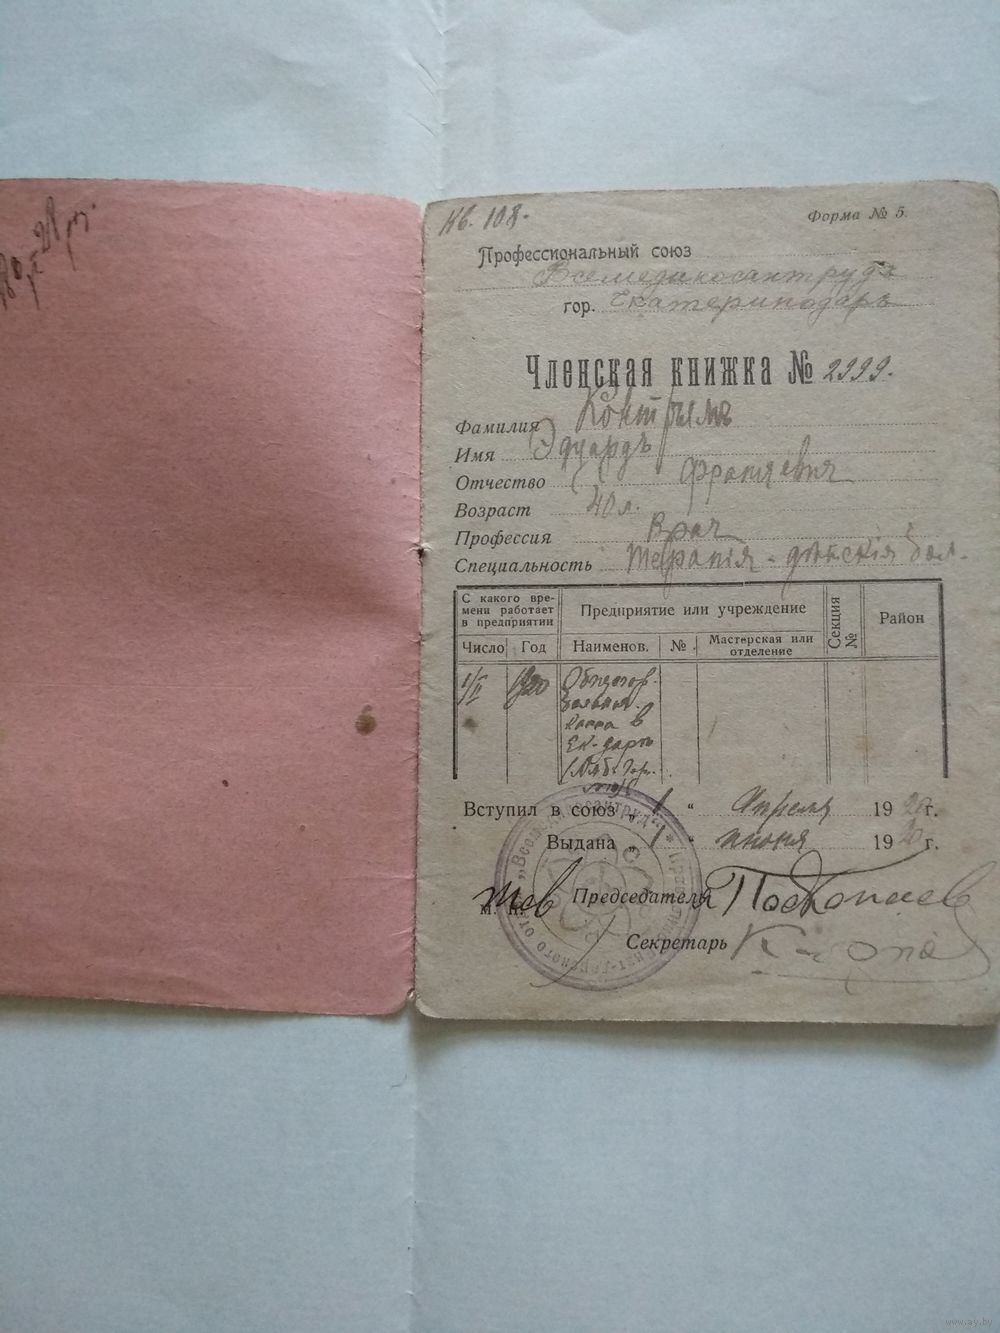 Кв. 108.
Форма № 5.
Профессиональный союз
Всемедикосантрудъ
гор. Екатеринодаръ
Членская книжка № 2999.
Фамилия Контрымъ
Имя Эдуардъ
Отчество Францевич
Возраст 40 л.
Профессия Врач
Специальность Терапія - дѣтскія бол.
С какого вре-
мени работает
в предприятии
Предприятие или учреждение
Секция №
Район
Число
Год
Наименов.
№
Мастерская или
отделение
1920
больнич.
касса в
Ек-даръ
Вступил в союз „1“ Апреля 1920 г.
Выдана „1“ июня 1920 г.
м. п.
Председатель
Секретарь
www.ay.by